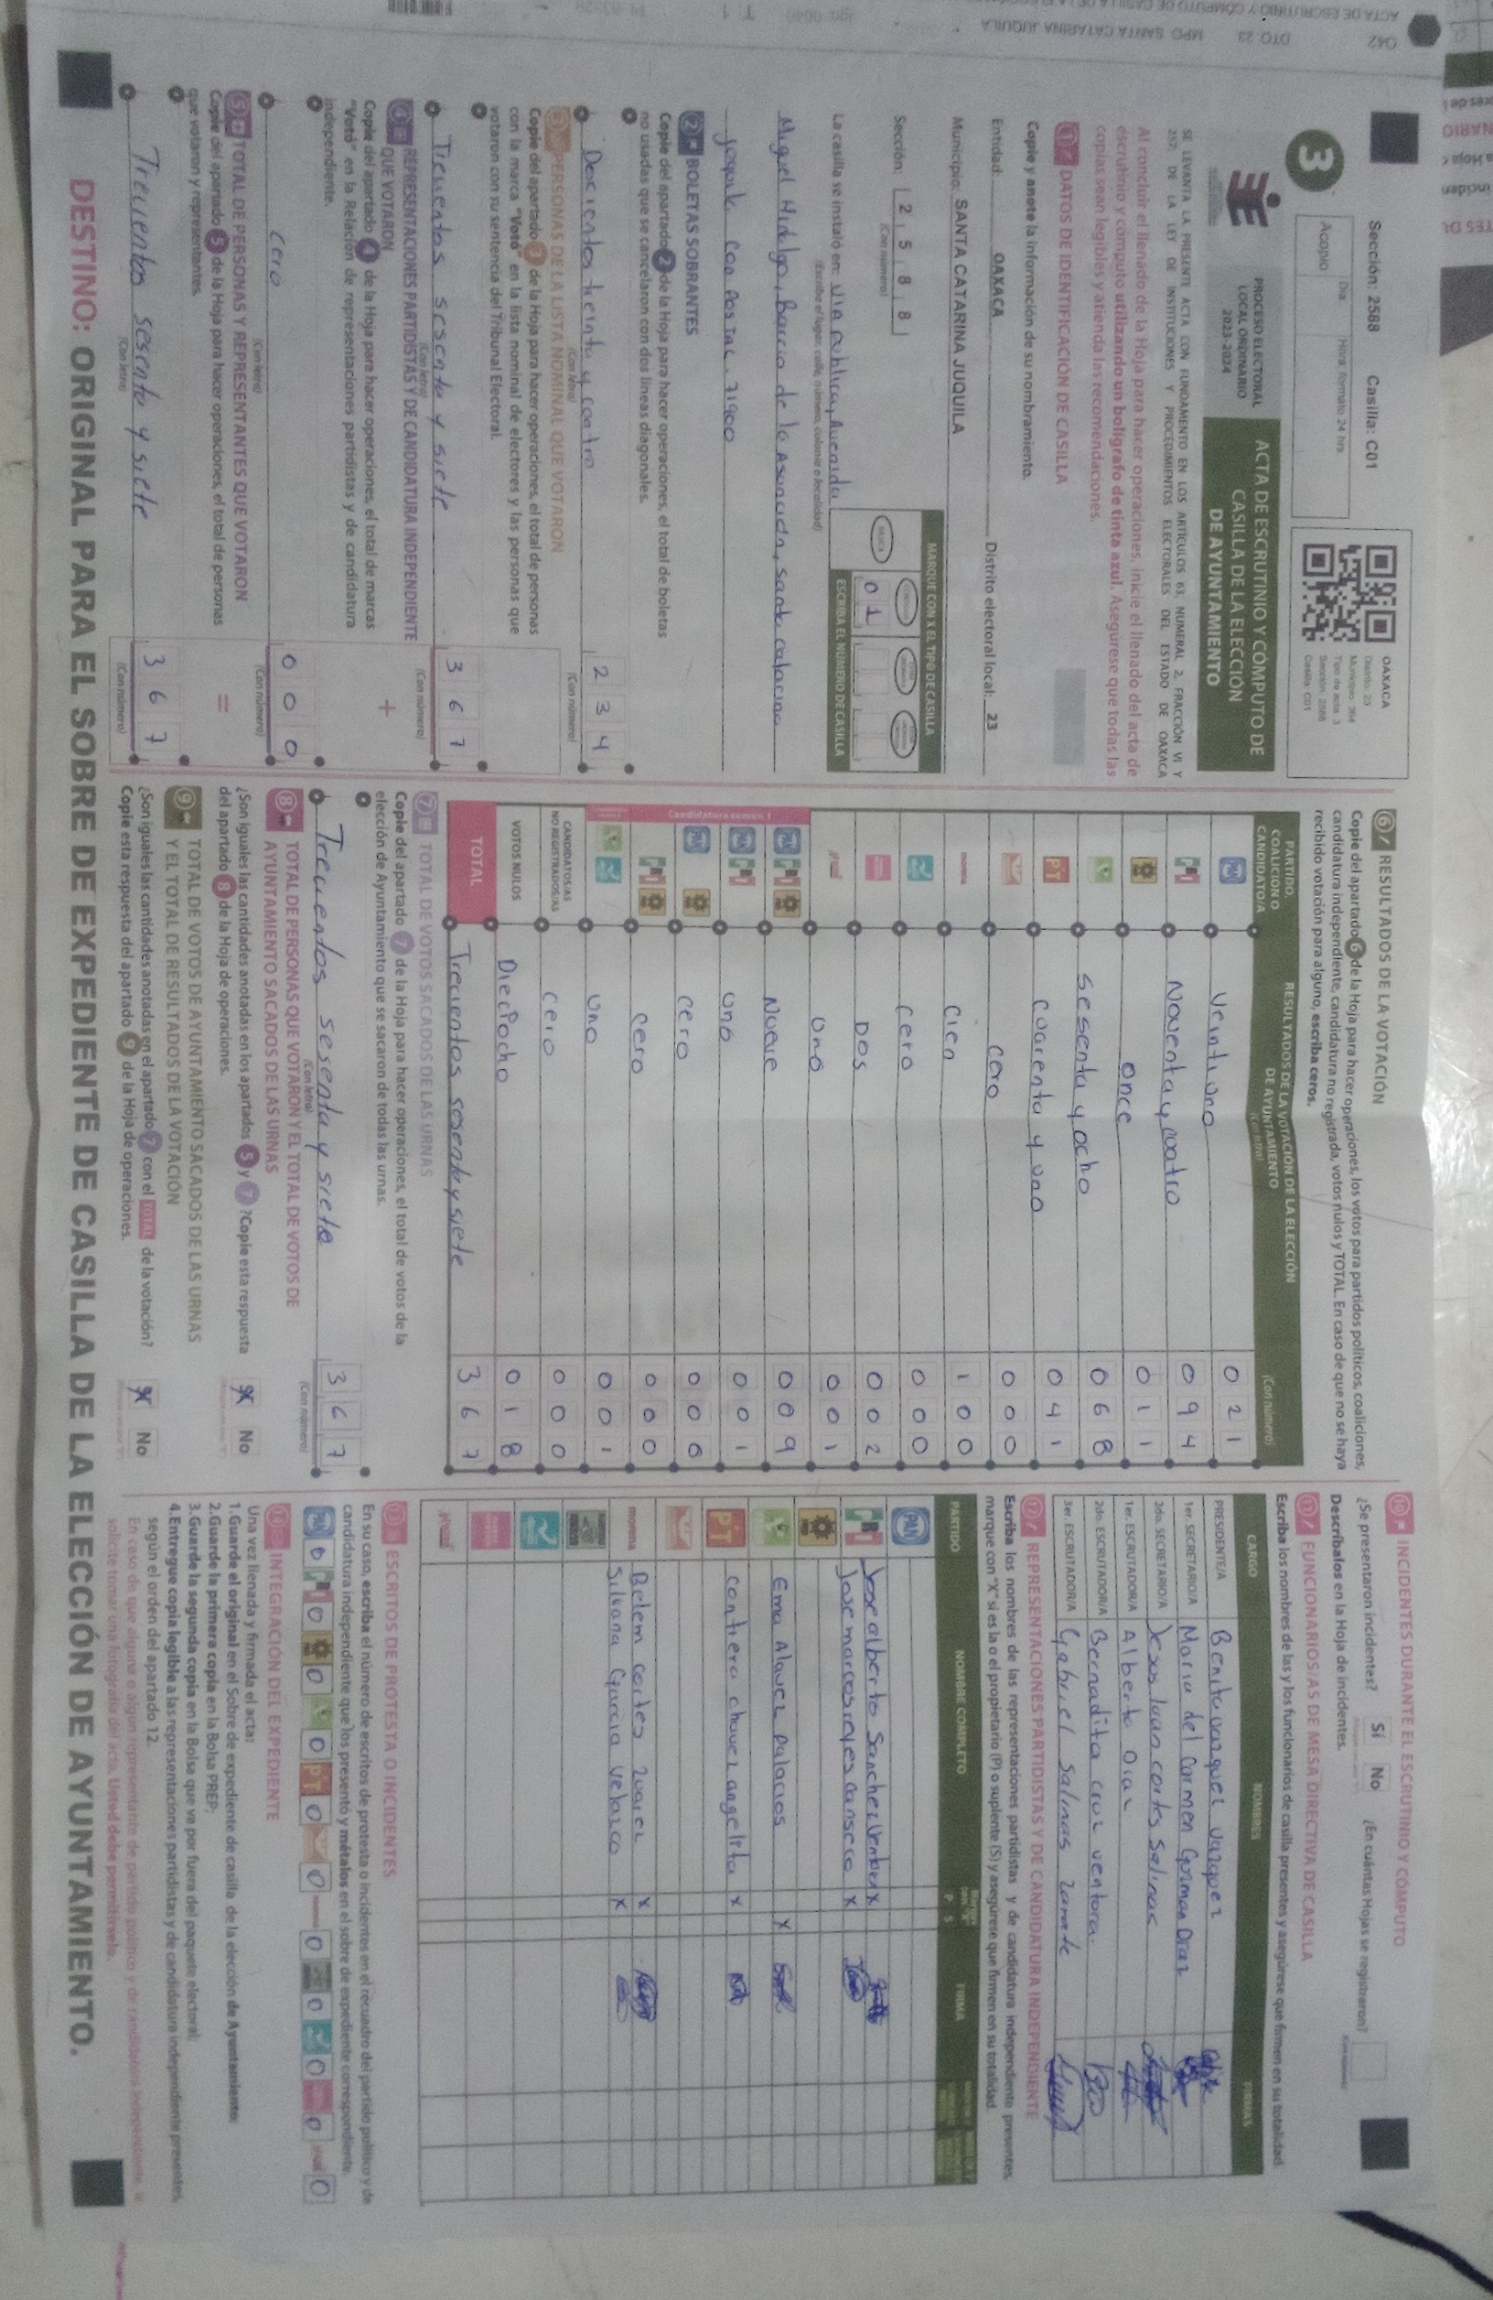 Sección: 2588 Casilla: C01
3
Acopio
Día
Hora: formato 24 hrs.
OAXACA
Distrito: 23
Tipo de acta: 3
Sección: 2588
Casilla: C01
PROCESO ELECTORAL
LOCAL ORDINARIO
2023-2024
ACTA DE ESCRUTINIO Y CÓMPUTO DE
CASILLA DE LA ELECCIÓN
DE AYUNTAMIENTO
SE LEVANTA LA PRESENTE ACTA CON FUNDAMENTO EN LOS ARTÍCULOS 63, NUMERAL 2, FRACCIÓN VI Y
257, DE LA LEY DE INSTITUCIONES Y PROCEDIMIENTOS ELECTORALES DEL ESTADO DE OAXACA
Al concluir el llenado de la Hoja para hacer operaciones, inicie el llenado del acta de
escrutinio y cómputo utilizando un bolígrafo de tinta azul. Asegúrese que todas las
copias sean legibles y atienda las recomendaciones.
1 DATOS DE IDENTIFICACIÓN DE CASILLA
Copie y anote la información de su nombramiento.
Entidad: OAXACA Distrito electoral local: 23
Municipio: SANTA CATARINA JUQUILA
Sección: 2 5 8 8
(Con número)
MARQUE CON X EL TIPO DE CASILLA
BÁSICA
0 1
ESCRIBA EL NÚMERO DE CASILLA
La casilla se instaló en: Via publica, Avenida
(Escriba el lugar: calle, número, colonia o localidad)
Miguel Hidalgo, Barrio de la Asunción, Santa Catarina
Juquila Cod Postal. 71900
2 BOLETAS SOBRANTES
Copie del apartado 2 de la Hoja para hacer operaciones, el total de boletas
no usadas que se cancelaron con dos líneas diagonales.
Docientos treinta y cuatro 2 3 4
(Con letra) (Con número)
3 PERSONAS DE LA LISTA NOMINAL QUE VOTARON
Copie del apartado 3 de la Hoja para hacer operaciones, el total de personas
con la marca "Votó" en la lista nominal de electores y las personas que
votaron con su sentencia del Tribunal Electoral.
Trecientos sesenta y siete 3 6 7
(Con letra) (Con número)
4 REPRESENTACIONES PARTIDISTAS Y DE CANDIDATURA INDEPENDIENTE
QUE VOTARON +
Copie del apartado 4 de la Hoja para hacer operaciones, el total de marcas
"Votó" en la Relación de representaciones partidistas y de candidatura
independiente.
Cero 0 0 0
(Con letra) (Con número)
5 TOTAL DE PERSONAS Y REPRESENTANTES QUE VOTARON =
Copie del apartado 5 de la Hoja para hacer operaciones, el total de personas
que votaron y representantes.
Trecientos sesenta y siete 3 6 7
(Con letra) (Con número)
6 RESULTADOS DE LA VOTACIÓN
Copie del apartado 6 de la Hoja para hacer operaciones, los votos para partidos políticos, coaliciones,
candidatura independiente, candidatura no registrada, votos nulos y TOTAL. En caso de que no se haya
recibido votación para alguno, escriba ceros.
PARTIDO,
COALICIÓN O
CANDIDATO/A
RESULTADOS DE LA VOTACIÓN DE LA ELECCIÓN
DE AYUNTAMIENTO
(Con letra) (Con número)
Veintiuno 0 2 1
Noventa y cuatro 0 9 4
once 0 1 1
sesenta y ocho 0 6 8
PT cuarenta y uno 0 4 1
cero 0 0 0
morena cien 1 0 0
cero 0 0 0
Dos 0 0 2
Uno 0 0 1
Candidatura común 1
Nueve 0 0 9
Uno 0 0 1
cero 0 0 0
cero 0 0 0
Uno 0 0 1
CANDIDATOS/AS
NO REGISTRADOS/AS cero 0 0 0
VOTOS NULOS Dieciocho 0 1 8
TOTAL Trecientos sesenta y siete 3 6 7
7 TOTAL DE VOTOS SACADOS DE LAS URNAS
Copie del apartado 7 de la Hoja para hacer operaciones, el total de votos de la
elección de Ayuntamiento que se sacaron de todas las urnas.
Trecientos sesenta y siete 3 6 7
(Con letra) (Con número)
8 TOTAL DE PERSONAS QUE VOTARON Y EL TOTAL DE VOTOS DE
AYUNTAMIENTO SACADOS DE LAS URNAS
¿Son iguales las cantidades anotadas en los apartados 5 y 7? Copie esta respuesta
del apartado 8 de la Hoja de operaciones. Sí X No
9 TOTAL DE VOTOS DE AYUNTAMIENTO SACADOS DE LAS URNAS
Y EL TOTAL DE RESULTADOS DE LA VOTACIÓN
¿Son iguales las cantidades anotadas en el apartado 7 con el TOTAL de la votación?
Copie esta respuesta del apartado 9 de la Hoja de operaciones. Sí X No
10 INCIDENTES DURANTE EL ESCRUTINIO Y CÓMPUTO
¿Se presentaron incidentes? Sí No ¿En cuántas Hojas se registraron?
Descríbalos en la Hoja de incidentes.
11 FUNCIONARIOS/AS DE MESA DIRECTIVA DE CASILLA
Escriba los nombres de las y los funcionarios de casilla presentes y asegúrese que firmen en su totalidad.
CARGO NOMBRES FIRMAS
PRESIDENTE/A Benita vazquez vazquez
1er. SECRETARIO/A Maria del Carmen Guzman Diaz
2do. SECRETARIO/A Jesus Juan cortes Salinas
1er. ESCRUTADOR/A Alberto Diaz
2do. ESCRUTADOR/A Bernadita cruz ventura
3er. ESCRUTADOR/A Gabriel Salinas Zarate
12 REPRESENTACIONES PARTIDISTAS Y DE CANDIDATURA INDEPENDIENTE
Escriba los nombres de las representaciones partidistas y de candidatura independiente presentes,
marque con "X" si es la o el propietario (P) o suplente (S) y asegúrese que firmen en su totalidad.
PARTIDO NOMBRE COMPLETO P S FIRMA
PAN
Jose alberto Sanchez X
Jose marcos reyes canseco X
Ema Alavez Palacios X
PT Contrera chavez angelita X
morena Belem cortes Zuarez X
Silvana Garcia Velasco X
13 ESCRITOS DE PROTESTA O INCIDENTES
En su caso, escriba el número de escritos de protesta o incidentes en el recuadro del partido político y de
candidatura independiente que los presentó y métalos en el sobre de expediente correspondiente.
PAN 0 0 0 0 PT 0 0 0 0 0 0 0
14 INTEGRACIÓN DEL EXPEDIENTE
Una vez llenada y firmada el acta:
1.Guarde el original en el Sobre de expediente de casilla de la elección de Ayuntamiento;
2.Guarde la primera copia en la Bolsa PREP;
3.Guarde la segunda copia en la Bolsa que va por fuera del paquete electoral;
4.Entregue copia legible a las representaciones partidistas y de candidatura independiente presentes,
según el orden del apartado 12.
En caso de que alguna o algún representante de partido político y de candidatura independiente, le
solicite tomar una fotografía del acta, Usted debe permitírselo.
DESTINO: ORIGINAL PARA EL SOBRE DE EXPEDIENTE DE CASILLA DE LA ELECCIÓN DE AYUNTAMIENTO.
042 DTO 23 MPO SANTA CATARINA JUQUILA